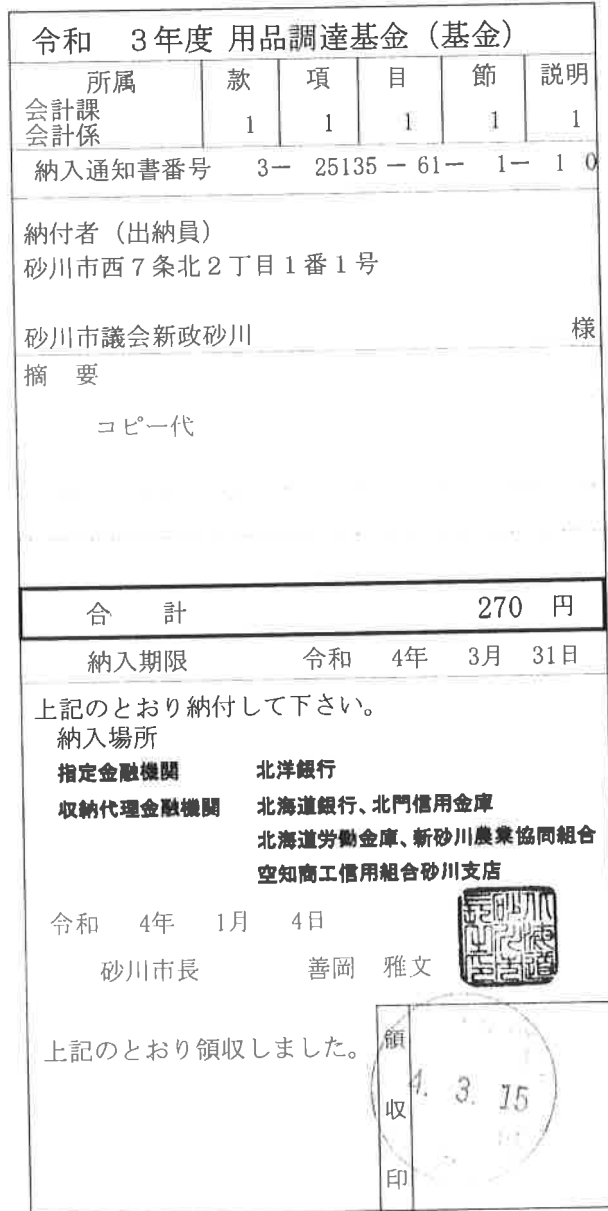 令和　3年度 用品調達基金（基金）
所属　款　項　目　節　説明
会計課
会計係　1　1　1　1　1
納入通知書番号　3－ 25135 － 61－ 1－ 1 0
納付者（出納員）
砂川市西7条北2丁目1番1号
砂川市議会新政砂川　様
摘　要
コピー代
合　計　270　円
納入期限　令和　4年　3月　31日
上記のとおり納付して下さい。
納入場所
指定金融機関　北洋銀行
収納代理金融機関　北海道銀行、北門信用金庫
北海道労働金庫、新砂川農業協同組合
空知商工信用組合砂川支店
令和　4年　1月　4日
砂川市長　善岡　雅文
北海道砂川市長之印
上記のとおり領収しました。
領収印
4. 3. 15